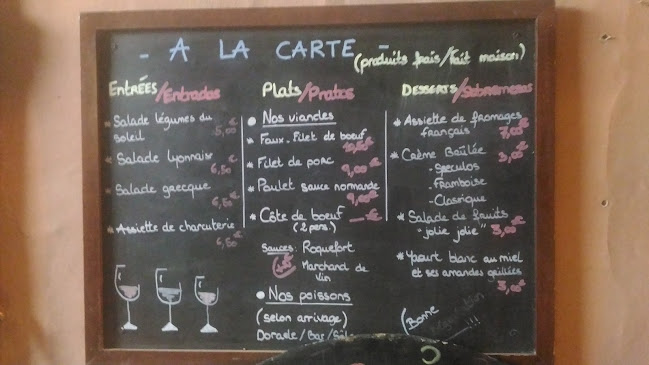 - A LA CARTE -
(produits frais/fait maison)
ENTRÉES/Entradas
* Salade légumes du
soleil 5,00€
* Salade Lyonnaise
6,50€
* Salade grecque
6,50€
* Assiette de charcuterie
6,50€
Plats/Pratos
• Nos viandes
* Faux-Filet de boeuf
10,50€
* Filet de porc
9,00€
* Poulet sauce normande
9,00€
* Côte de boeuf —€
(2 pers.)
Sauces: Roquefort
Marchand de
vin
• Nos poissons
(selon arrivage)
Dorade/Bar/
DESSERTS/Sobremesas
* Assiette de fromages
français 7,00€
* Crème Brûlée 3,00€
- Speculos
- Framboise
- Classique
* Salade de fruits
"jolie jolie" 3,00€
* Yaourt blanc au miel
et ses amandes grillées
3,00€
(Bonne
!!!